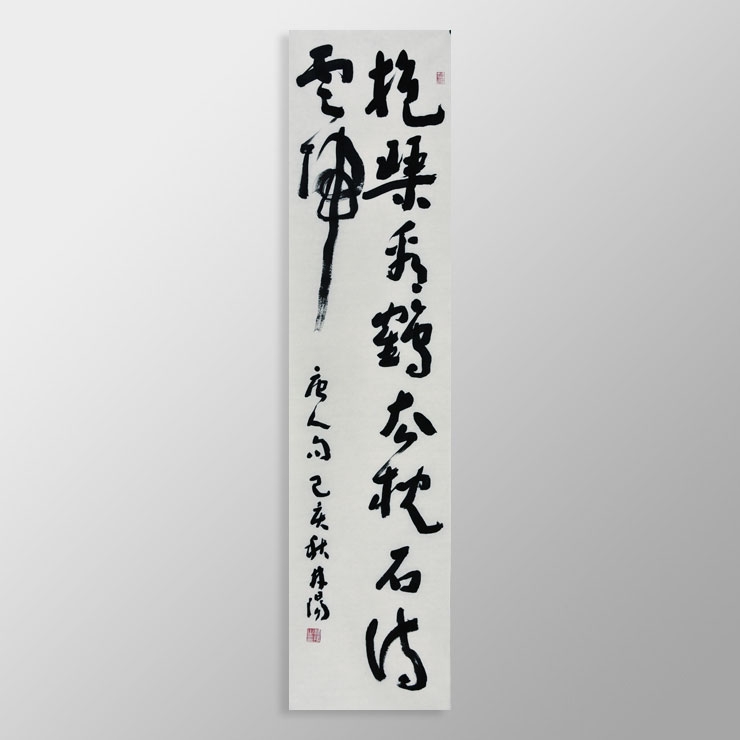 抱琴看鶴去枕石待
雲歸
唐人句己亥秋